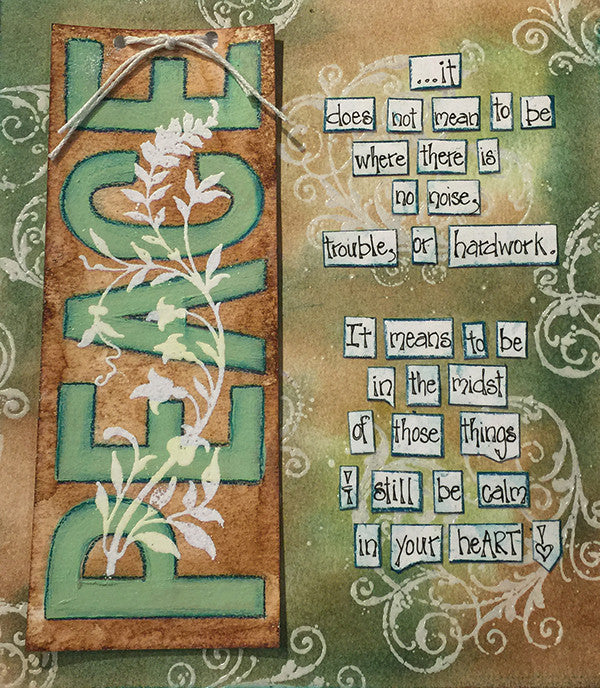 PEACE
...it
does not mean to be
where there is
no noise,
trouble, or hardwork.
It means to be
in the midst
of those things
& still be calm
in your heART !